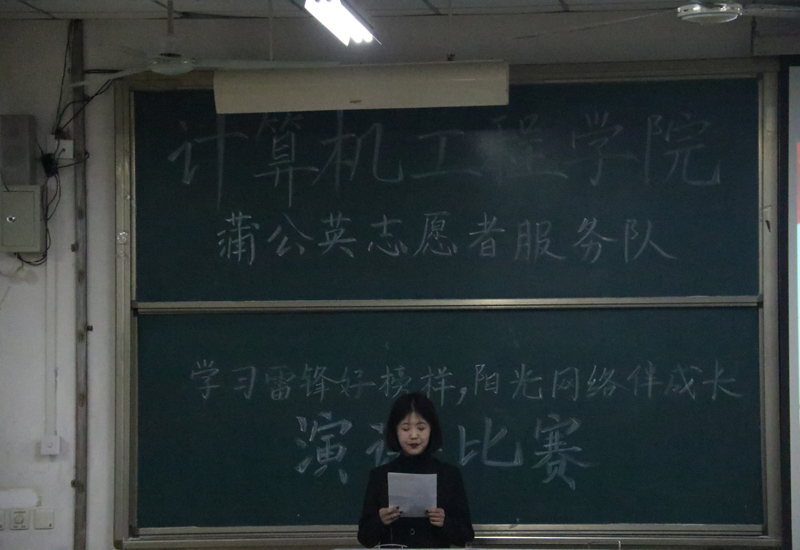 计算机工程学院
蒲公英志愿者服务队
学习雷锋好榜样,阳光网络伴成长
演讲比赛